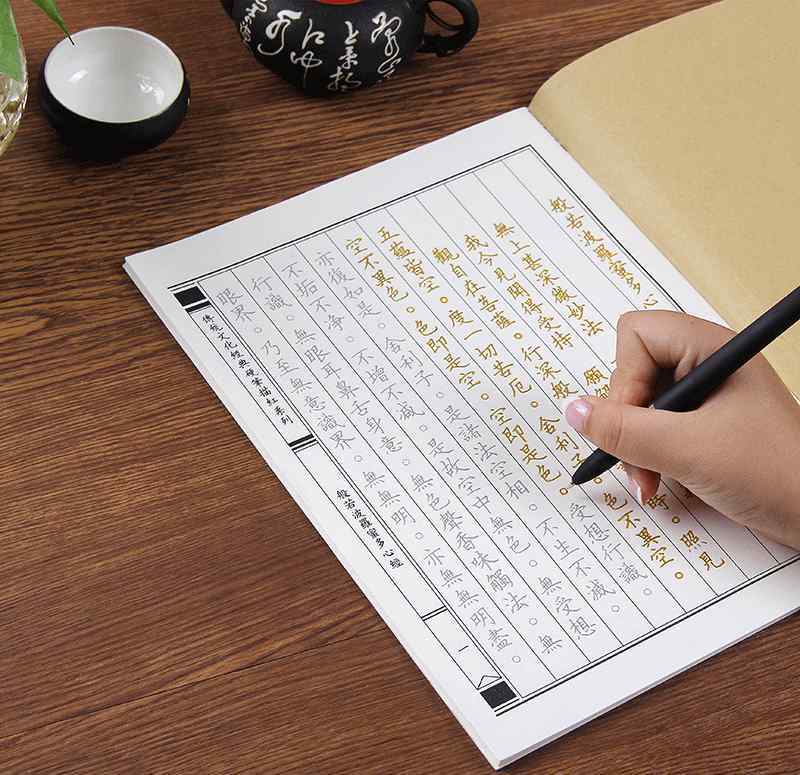 般若波羅蜜多心
無上甚深微妙法
我今見聞得受持
觀自在菩薩。行深般 時。照見
五蘊皆空。度一切苦厄。舍利子 色不異空。
空不異色。色即是空。空即是色。受想行識。
亦復如是。舍利子。是諸法空相。不生不滅。
不垢不淨。不增不減。是故空中無色。無受想
行識。無眼耳鼻舌身意。無色聲香味觸法。無
眼界。乃至無意識界。無無明。亦無無明盡。
傳統文化經典硬筆描紅系列
般若波羅蜜多心經
一